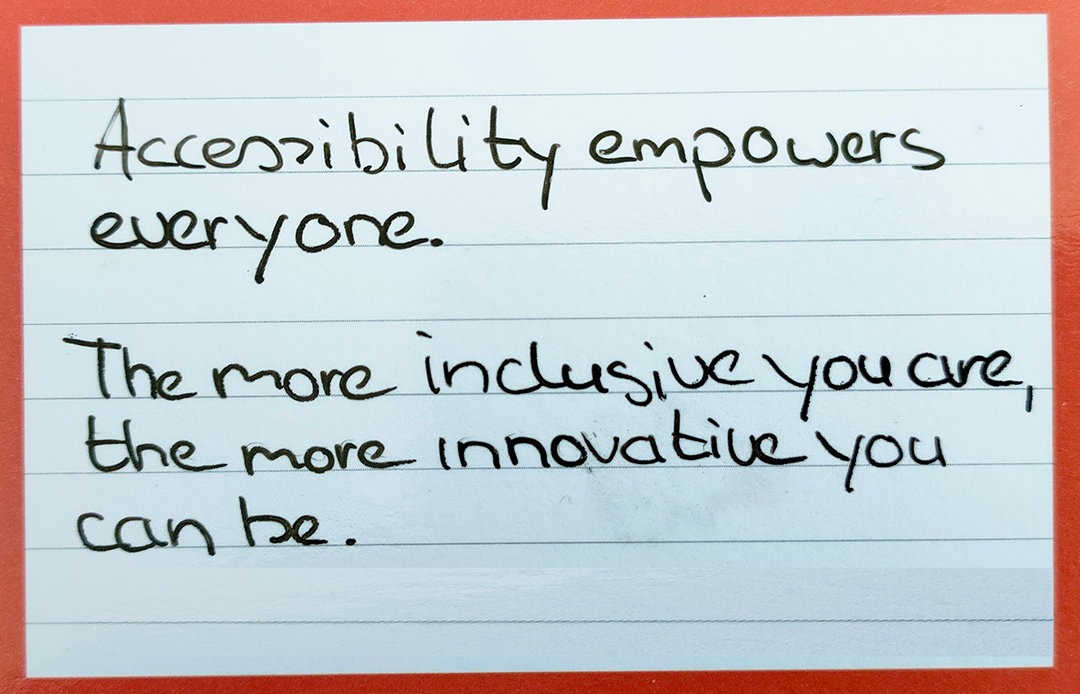 Accessibility empowers
everyone.
The more inclusive you are,
the more innovative you
can be.